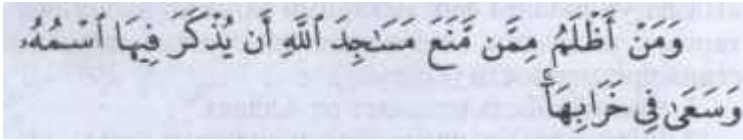 وَمَنْ أَظْلَمُ مِمَّن مَّنَعَ مَسَـٰجِدَ ٱللَّهِ أَن يُذْكَرَ فِيهَا ٱسْمُهُۥ
وَسَعَىٰ فِي خَرَابِهَآ ۚ